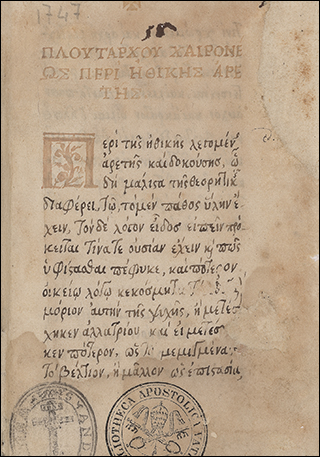 1747
ΠΛΟΥΤΑΡΧΟΥ ΧΑΙΡΩΝΕ
ΩΣ ΠΕΡΙ ΗΘΙΚΗΣ ΑΡΕ
ΤΗΣ
Περὶ τῆς ἠθικῆς λεγομέν
ἀρετῆς καὶ δοκούσης, ᾧ
δὴ μάλιστα τῆς θεωρητικ
διαφέρει, τῷ, τὸ μὲν πάθος ὕλην ἔ
χειν, τὸν δὲ λόγον εἶδος εἰπεῖν πρό
κειται τίνα τε οὐσίαν ἔχειν κ̀ πῶς
ὑφίστασθαι πέφυκε, καὶ πότερον
οἰκείῳ λόγῳ κεκοσμητ
μόριον αὐτὴν τῆς ψυχῆς, ἢ μετέσ
χηκεν ἀλλοτρίου καὶ εἰ μετέσ
κεν πότερον, ὡς τὰ μεμιγμένα
τὸ βέλτιον, ἢ μᾶλλον ὡς ἐπιστασία
BIBLIOTHECA APOSTOLICA VAT